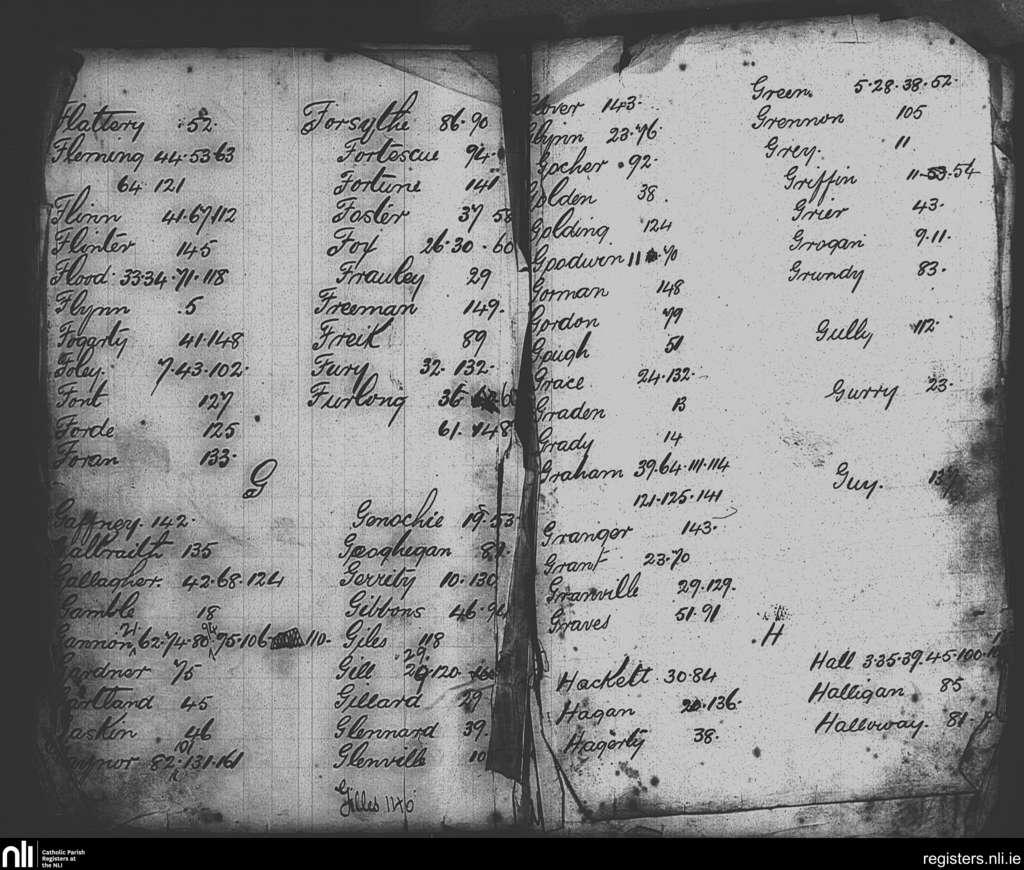 Flattery 52
Fleming 44.53.63
64 121
Flinn 41.67.112
Flinter 145
Flood 33.34.71.118
Flynn 5
Fogarty 41.148
Foley. 7.43.102.
Font 127
Forde 125
Foran 133.
Forsythe 86.90
Fortescue 94.
Fortune 141
Foster 37 58
Fox 26.30.60
Frauley 29
Freeman 149.
Freik 89
Fury 32.132.
Furlong 36
61.148
G
Gaffney. 142.
Galbraith 135
Gallagher. 42.68.124
Gamble 18
Gannon 21 62.74.80 94 95.106 110.
Gardner 75
Gartland 45
Gaskin 46
Gaynor 82.101.131.161
Genochie 19.53
Geoghegan
Gerrity 10.130
Gibbons 46
Giles 118
Gill 29. 120
Gillard 29
Glennard 39.
Glenville 10
Gilles 146
Glover 143.
Glynn 23.76.
Gocher 92.
Golden 38.
Golding 124
Goodwin 11 70
Gorman 148
Gordon 79
Gough 51
Grace 24.132.
Graden 13
Grady 14
Graham 39.64.111.114
121.125.141
Granger 143.
Grant 23.70
Granville 29.129.
Graves 51.91
Green. 5.28.38.52.
Grennon 105
Grey. 11
Griffin 11.53.54
Grier 43.
Grogan 9.11.
Grundy 83.
Gully 112.
Gurry 23.
Guy.
H
Hackett 30.84
Hagan 20.136.
Hagerty 38.
Hall 3.35.39.45.100
Halligan 85
Halloway. 81
nli Catholic Parish
Registers at
the NLI
registers.nli.ie